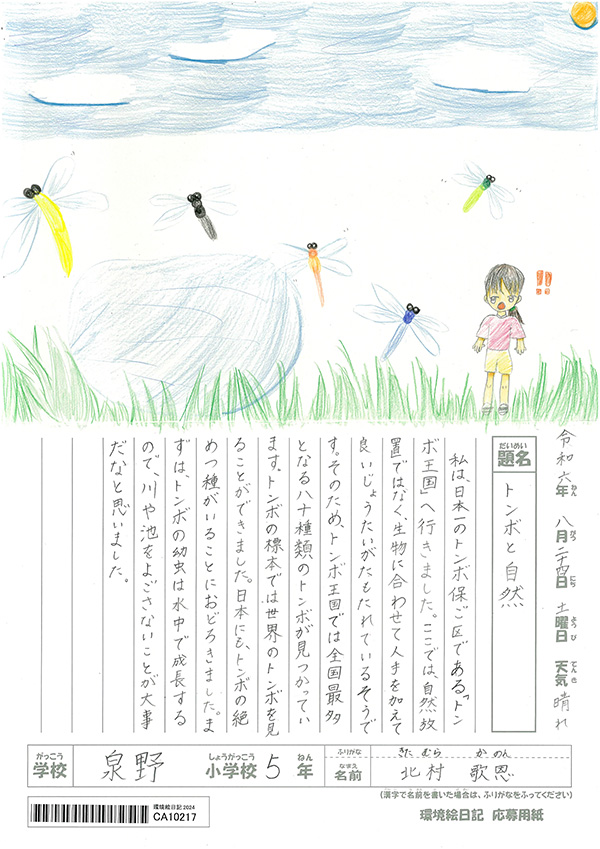 令和六年 八月二十四日 土曜日 天気 晴れ
ねん がつ にち ようび てんき
だいめい
題名 トンボと自然
私は、日本一のトンボ保ご区である「トン
ボ王国」へ行きました。ここでは、自然放
置ではなく、生物に合わせて人手を加えて
良いじょうたいがたもたれているそうで
す。そのため、トンボ王国では全国最多
となる八十種類のトンボが見つかってい
ます。トンボの標本では世界のトンボを見
ることができました。日本にも、トンボの絶
めつ種がいることにおどろきました。ま
ずは、トンボの幼虫は水中で成長する
ので、川や池をよごさないことが大事
だなと思いました。
がっこう しょうがっこう ねん ふりがな きたむら かのん
学校 泉野 小学校 5 年 なまえ 名前 北村 歌恩
(漢字で名前を書いた場合は、ふりがなをふってください)
環境絵日記2024
CA10217
環境絵日記 応募用紙